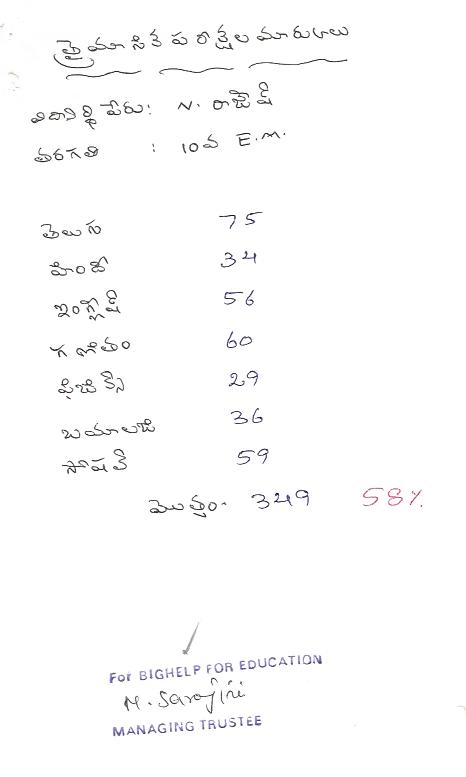 త్రైమాసిక పరీక్షల మారుకులు
విద్యార్థి పేరు: N. రాజేష్
తరగతి : 10వ E.M.
తెలుగు 75
హిందీ 34
ఇంగ్లీష్ 56
గణితం 60
ఫిజిక్స్ 29
బయాలజి 36
సోషల్ 59
మొత్తం- 349 58%
For BIGHELP FOR EDUCATION
M. Sarojini
MANAGING TRUSTEE